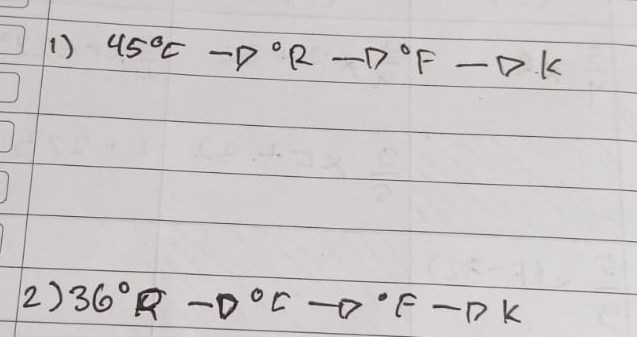 1) 45°C → °R → °F → K
2) 36°R → °C → °F → K